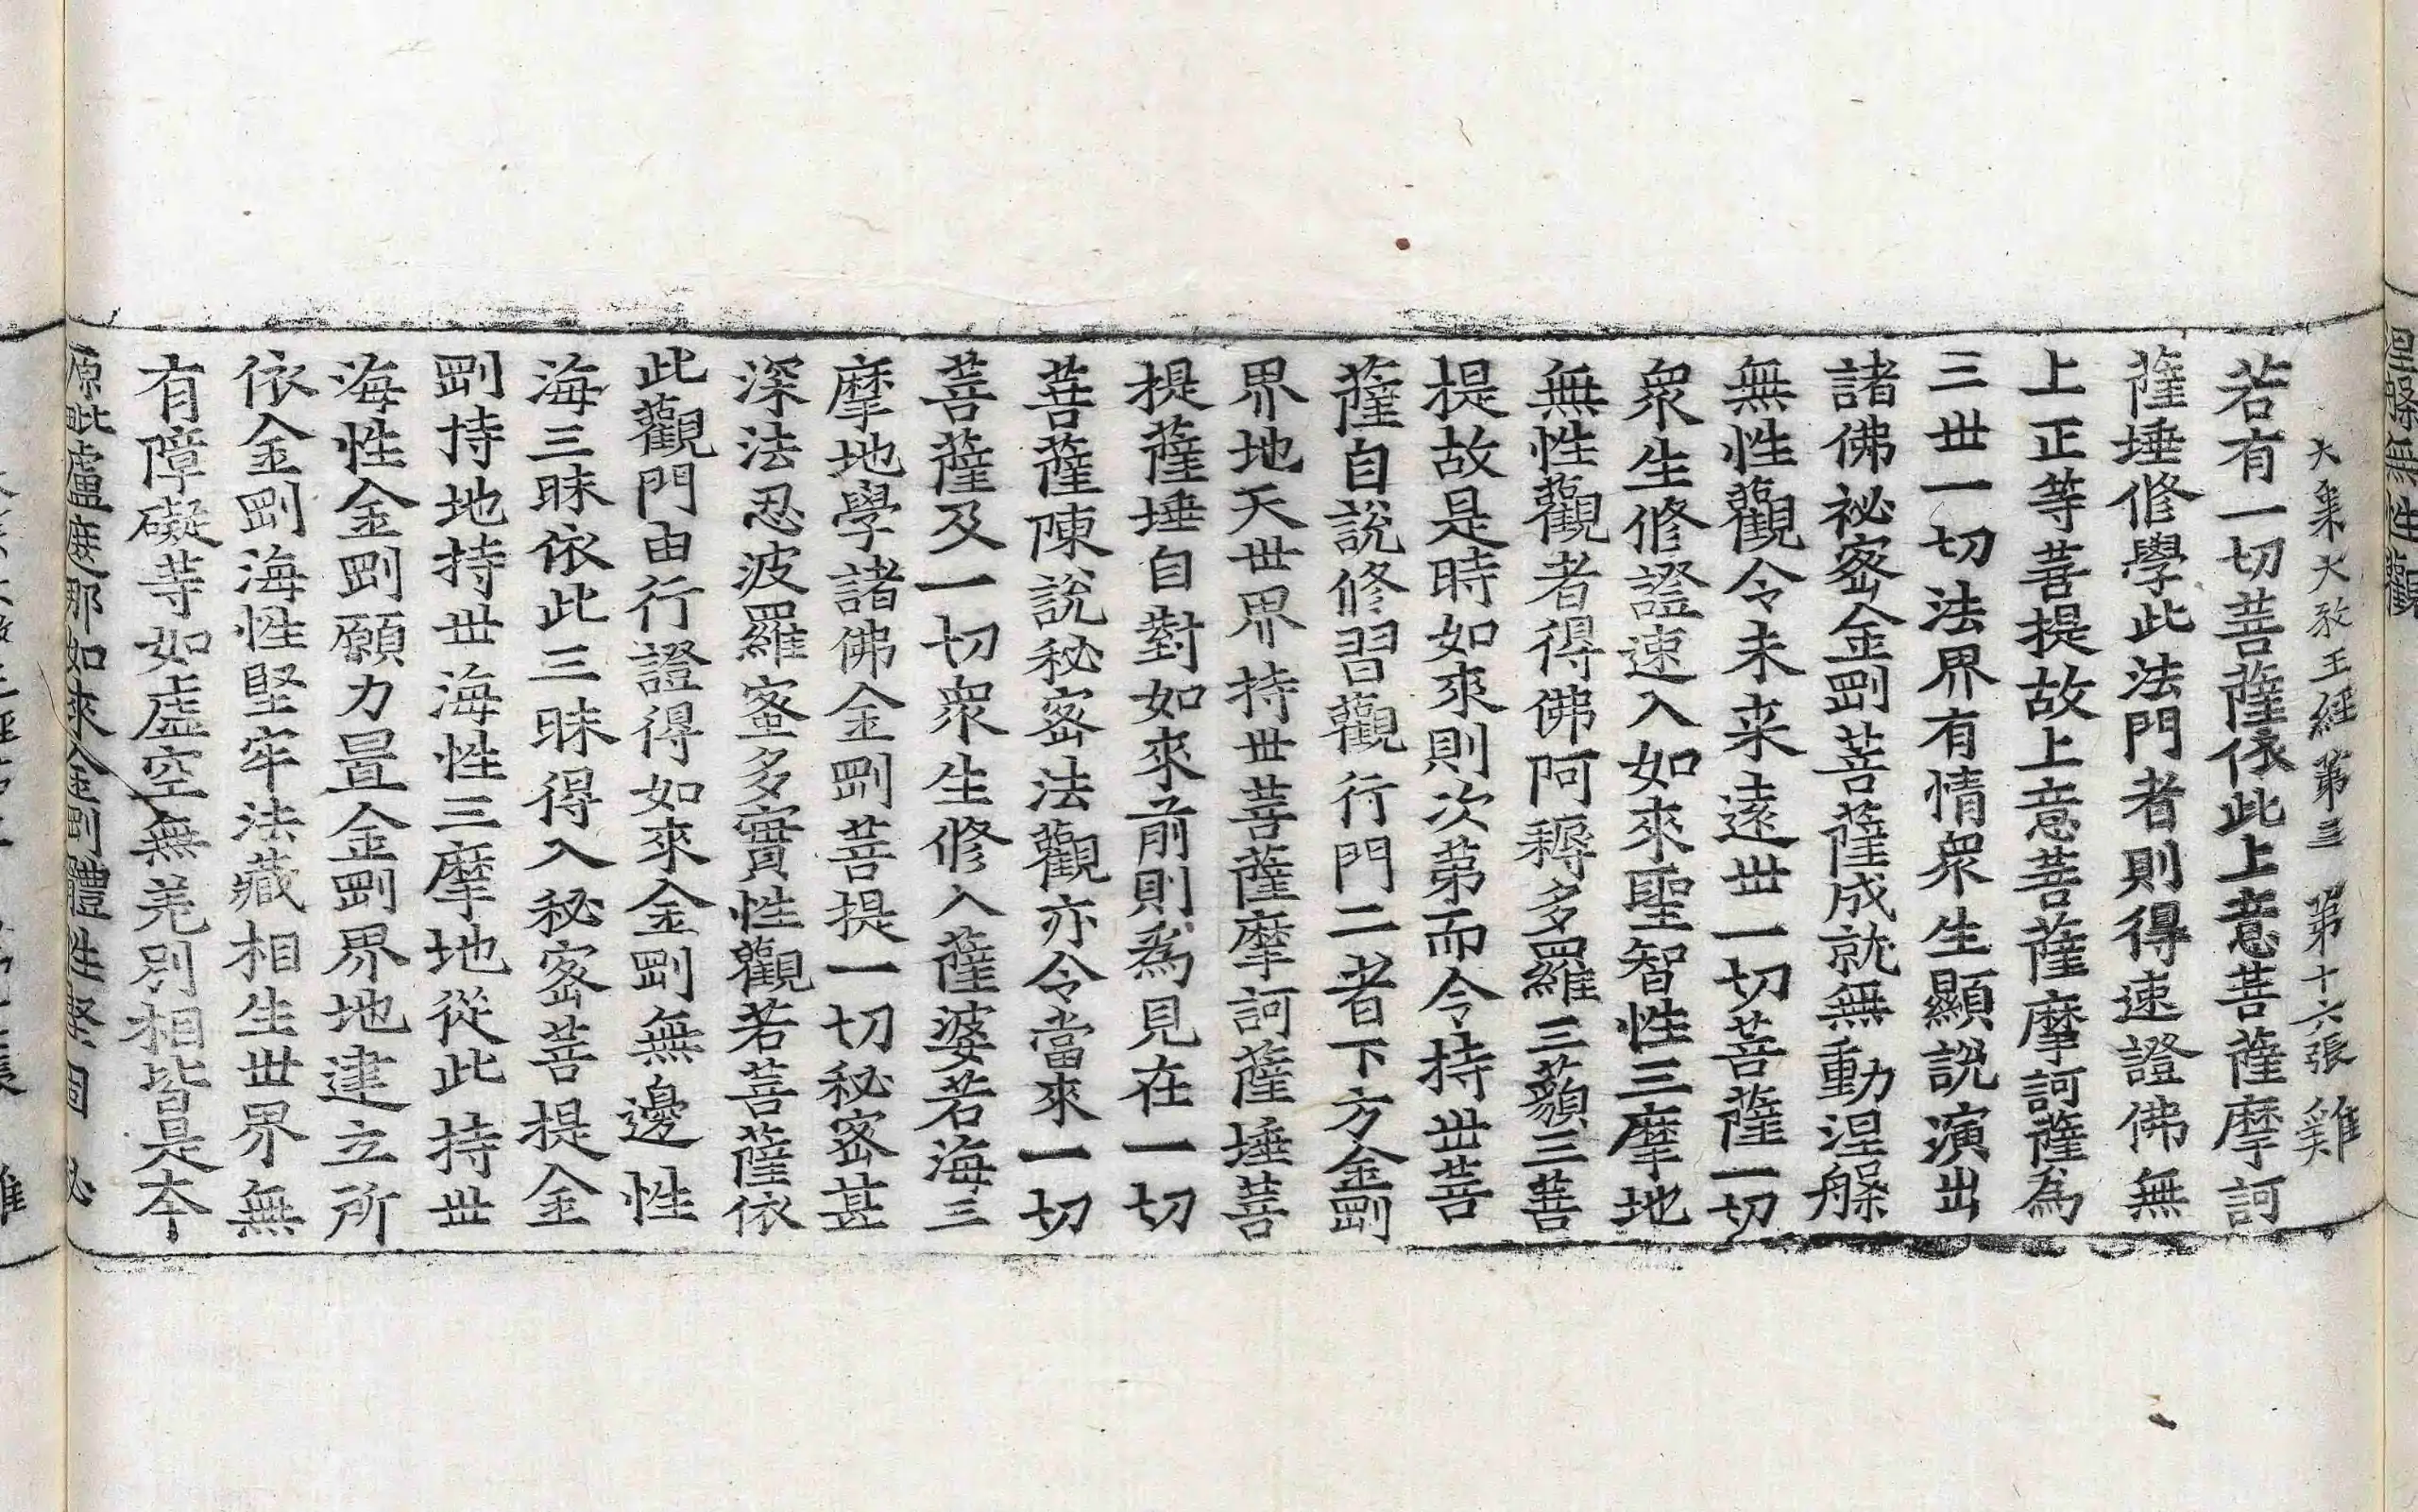 大集大敎王經第三　第十六張　雞
若有一切菩薩依此上意菩薩摩訶
薩埵修學此法門者則得速證佛無
上正等菩提故上意菩薩摩訶薩為
三世一切法界有情衆生顯說演出
諸佛祕密金剛菩薩成就無動涅槃
無性觀令未来遠世一切菩薩一切
衆生修證速入如來聖智性三摩地
無性觀者得佛阿耨多羅三藐三菩
提故是時如來則次第而令持世菩
薩自說修習觀行門二者下方金剛
界地天世界持世菩薩摩訶薩埵菩
提薩埵自對如來前則為見在一切
菩薩陳說秘密法觀亦令當來一切
菩薩及一切衆生修入薩婆若海三
摩地學諸佛金剛菩提一切秘密甚
深法忍波羅蜜多實性觀若菩薩依
此觀門由行證得如來金剛無邊性
海三昧依此三昧得入秘密菩提金
剛持地持世海性三摩地從此持世
海性金剛願力置金剛界地建立所
依金剛海性堅牢法藏相生世界無
有障礙等如虛空無差別相皆是本
源毗盧遮那如來金剛體性堅固